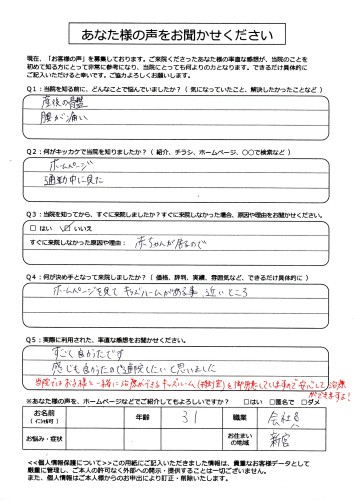 あなた様の声をお聞かせください
現在、「お客様の声」を募集しております。ご来院くださったあなた様の率直な感想が、当院のことを
初めて知る方にとって非常に参考になり、当院にとっても何よりの力となります。できるだけ具体的に
ご記入いただけると幸いです。ご協力よろしくお願いします。
Q1：当院を知る前に、どんなことで悩んでいましたか？（気になっていたこと、解決したかったことなど）
産後の骨盤
腰が痛い
Q2：何がキッカケで当院を知りましたか？（紹介、チラシ、ホームページ、〇〇で検索など）
ホームページ
通勤中に見た
Q3：当院を知ってから、すぐに来院しましたか？すぐに来院しなかった場合、原因や理由をお聞かせください。
□はい ☑いいえ
すぐに来院しなかった原因や理由： 赤ちゃんが居るので
Q4：何が決め手となって来院しましたか？（価格、評判、実績、雰囲気など、できるだけ具体的に）
ホームページを見てキッズルームがある事 近いところ
Q5：実際に利用された、率直な感想をお聞かせください。
すごく良かったです
感じも良かったので通院したいと思いました
当院ではお子様と一緒に治療ができるキッズルーム(個室)を御用意していますので安心して治療
ができますよ!
※あなた様の声を、ホームページなどでご紹介してもよろしいですか？ □はい □匿名で □ダメ
お名前 年齢 31 職業 会社員
お悩み・症状 お住まいの地域 新宮
<<個人情報保護について>>この用紙にご記入いただきました情報は、貴重なお客様データとして
厳重に管理し、ご本人の許可なく外部への開示・提供することは一切ございません。
また、個人情報はご本人様からのお申出により訂正・削除いたします。